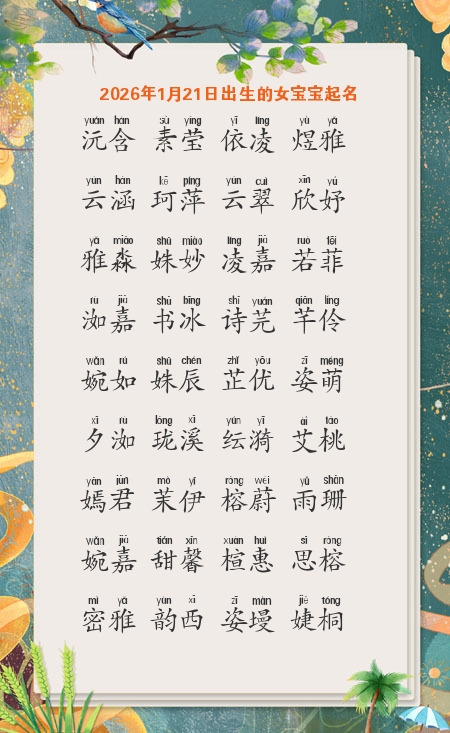 2026年1月21日出生的女宝宝起名
yuán hán sù yíng yī líng yù yǎ
沅含 素莹 依凌 煜雅
yún hán kē píng yún cuì xīn yú
云涵 珂萍 云翠 欣妤
yǎ miǎo shū miào líng jiā ruò fēi
雅淼 姝妙 凌嘉 若菲
rù jiā shū bīng shī yuán qiān líng
洳嘉 书冰 诗芫 芊伶
wǎn rú shū chén zhǐ yōu zī méng
婉如 姝辰 芷优 姿萌
xī rù lóng xī yún yī ài táo
夕洳 珑溪 纭漪 艾桃
yān jūn mò yī róng wèi yǔ shān
嫣君 茉伊 榕蔚 雨珊
wǎn jiā tián xīn xuān huì sī róng
婉嘉 甜馨 楦惠 思榕
mì yǎ yùn xī zī màn jié tóng
密雅 韵西 姿墁 婕桐